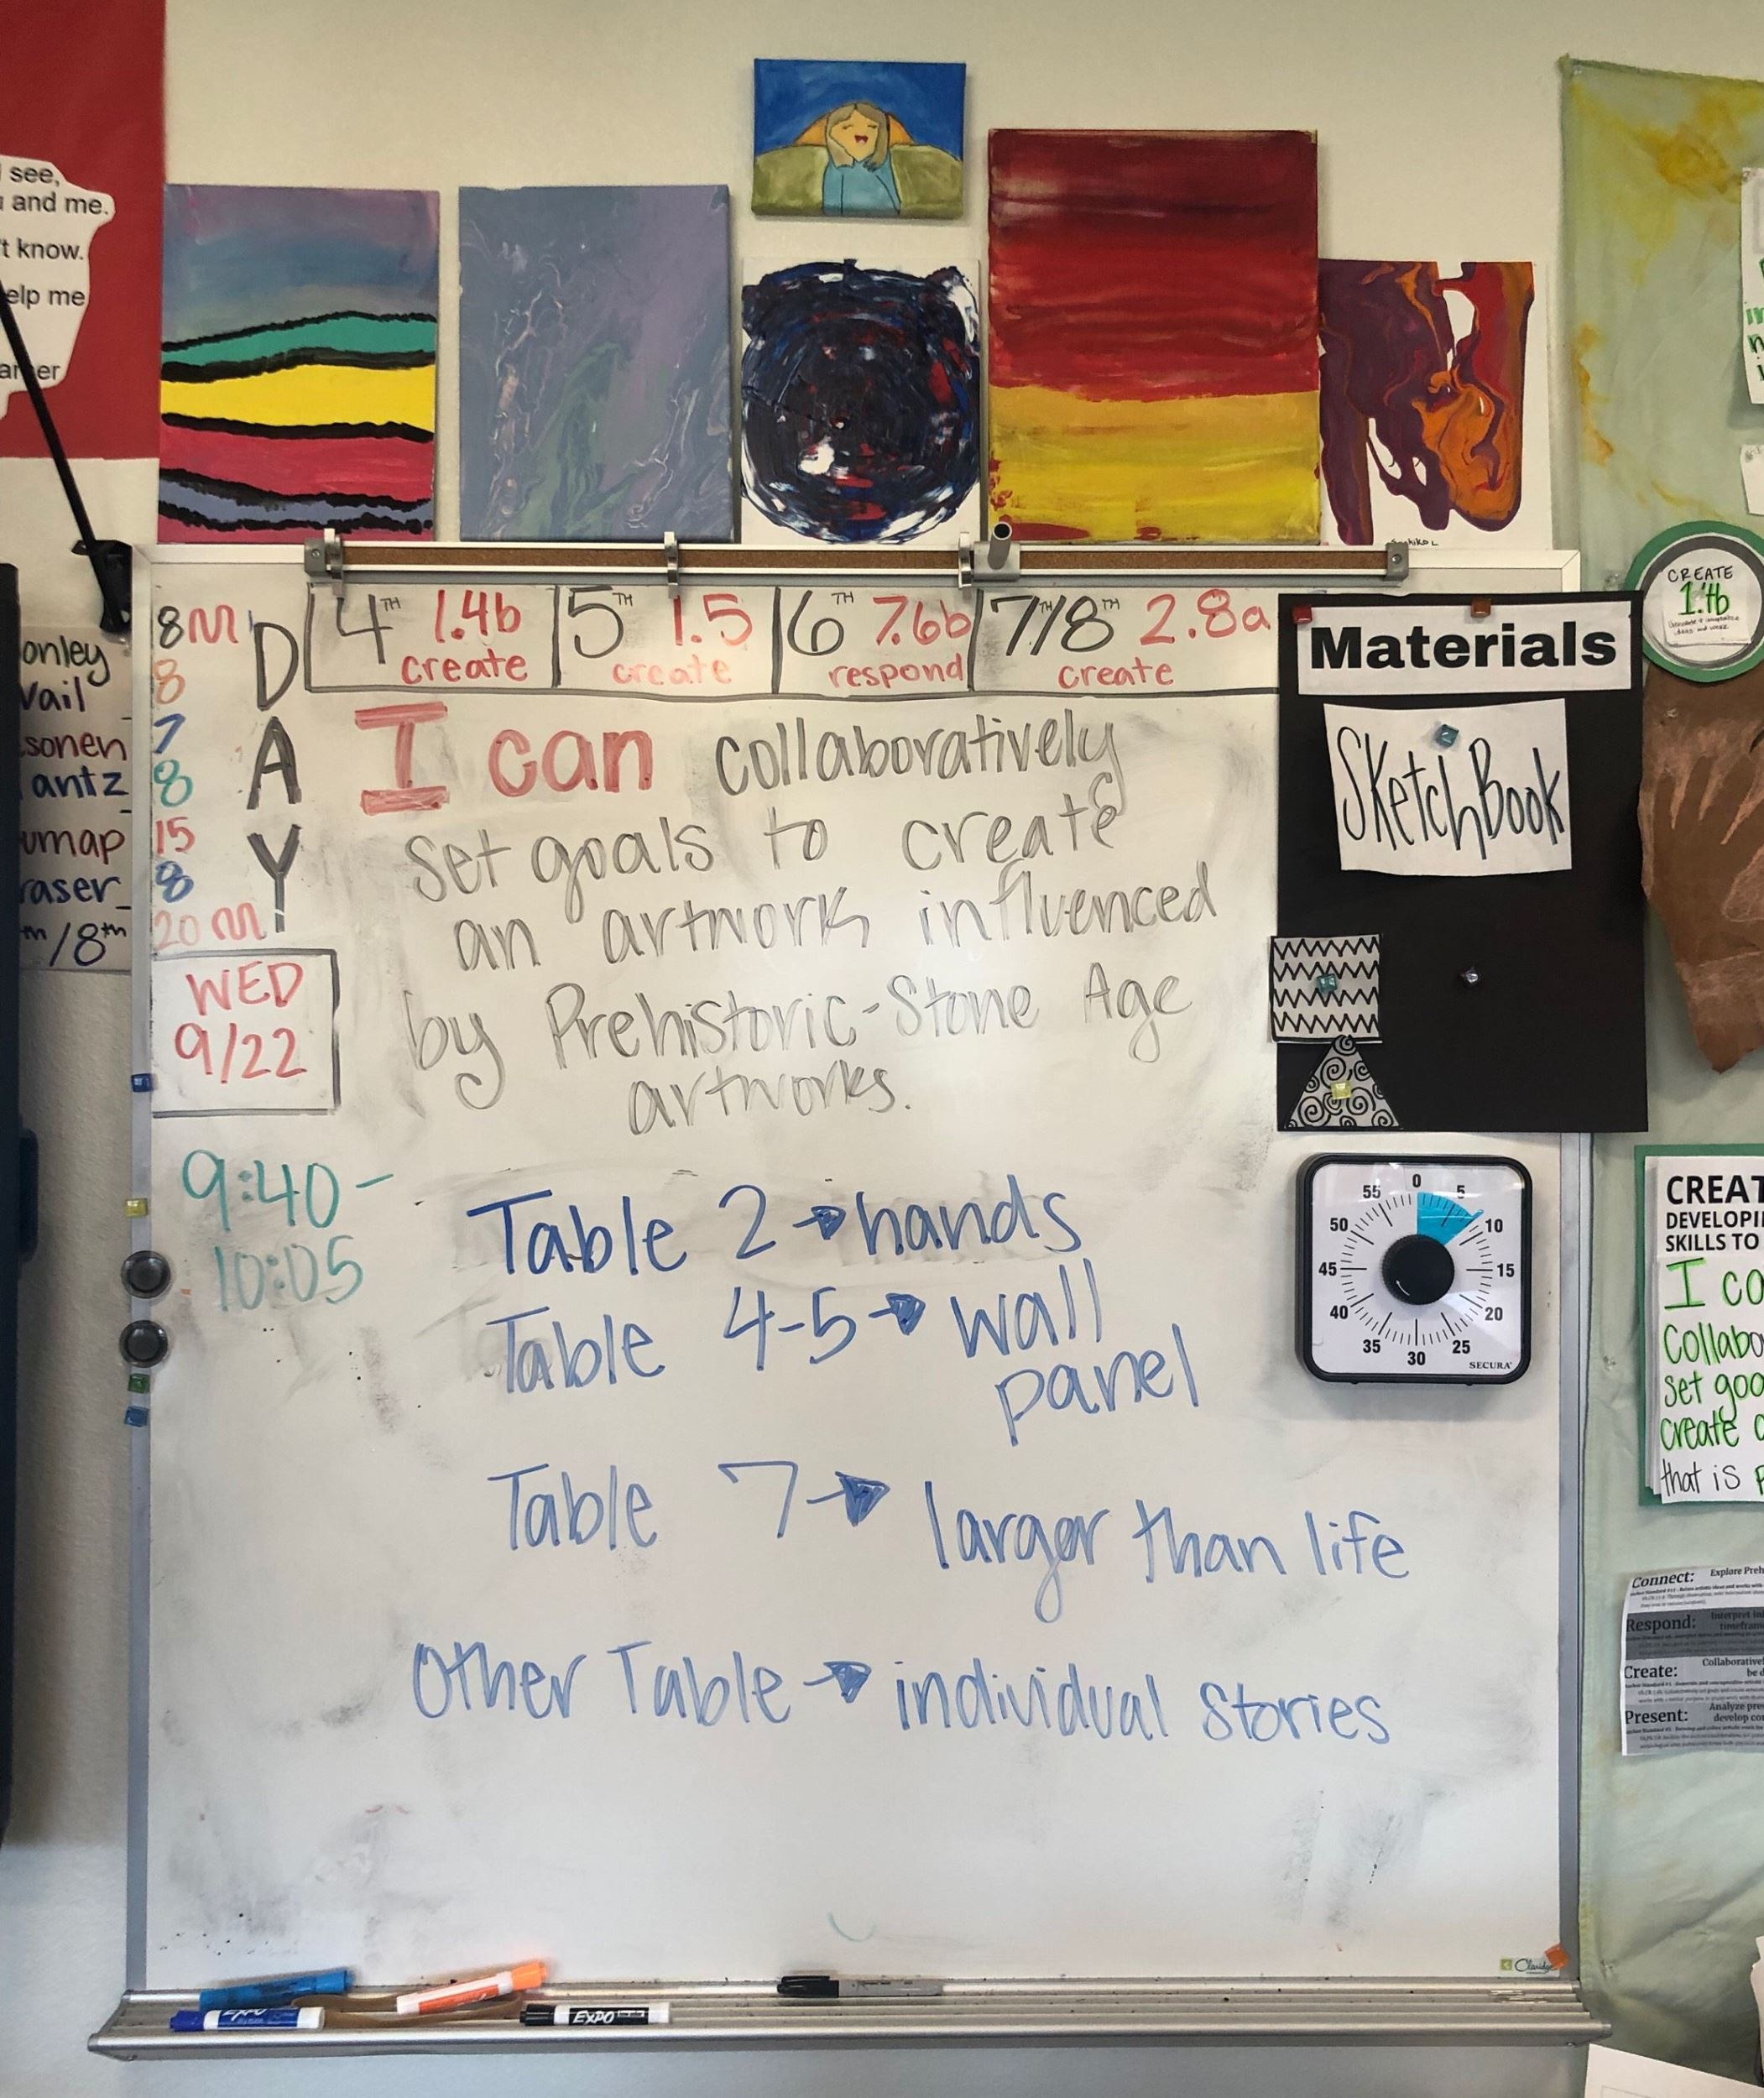 see,
and me.
't know.
elp me
onley
Vail
sonen
antz
umap
raser
/8th
8m
8
7
8
15
8
20m
DAY
WED
9/22
4TH 1.4b
create
5TH 1.5
create
6TH 7.6b
respond
7TH/8TH 2.8a
create
I can collaboratively
set goals to create
an artwork influenced
by Prehistoric-Stone Age
artworks.
9:40-
10:05
Table 2→hands
Table 4-5→wall
panel
Table 7→larger than life
Other Table→individual stories
Materials
SketchBook
0
5
10
15
20
25
30
35
40
45
50
55
SECURA
CREATE
1.4b
CREAT
DEVELOPI
SKILLS TO
I co
Collabo
set goa
create
that is
Connect: Explore Preh
Respond: Interpret in
timefram
Create: Collaborativel
be d
Present: Analyze pre
develop co
EXPO
EXPO